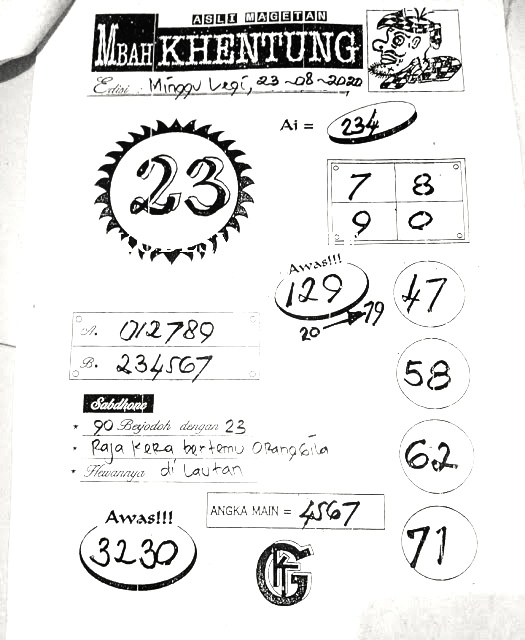 ASLI MAGETAN
MBAH KHENTUNG
Edisi : Minggu Legi, 23-08-2020
Ai = 234
23
7 8
9 0
Awas!!!
129
20
79
47
A. 012789
B. 234567
58
Sabdhone
* 90 Berjodoh dengan 23
* Raja Kera bertemu Orang Gila
* Hewannya di Lautan
62
ANGKA MAIN = 4567
Awas!!!
3230
71
GK